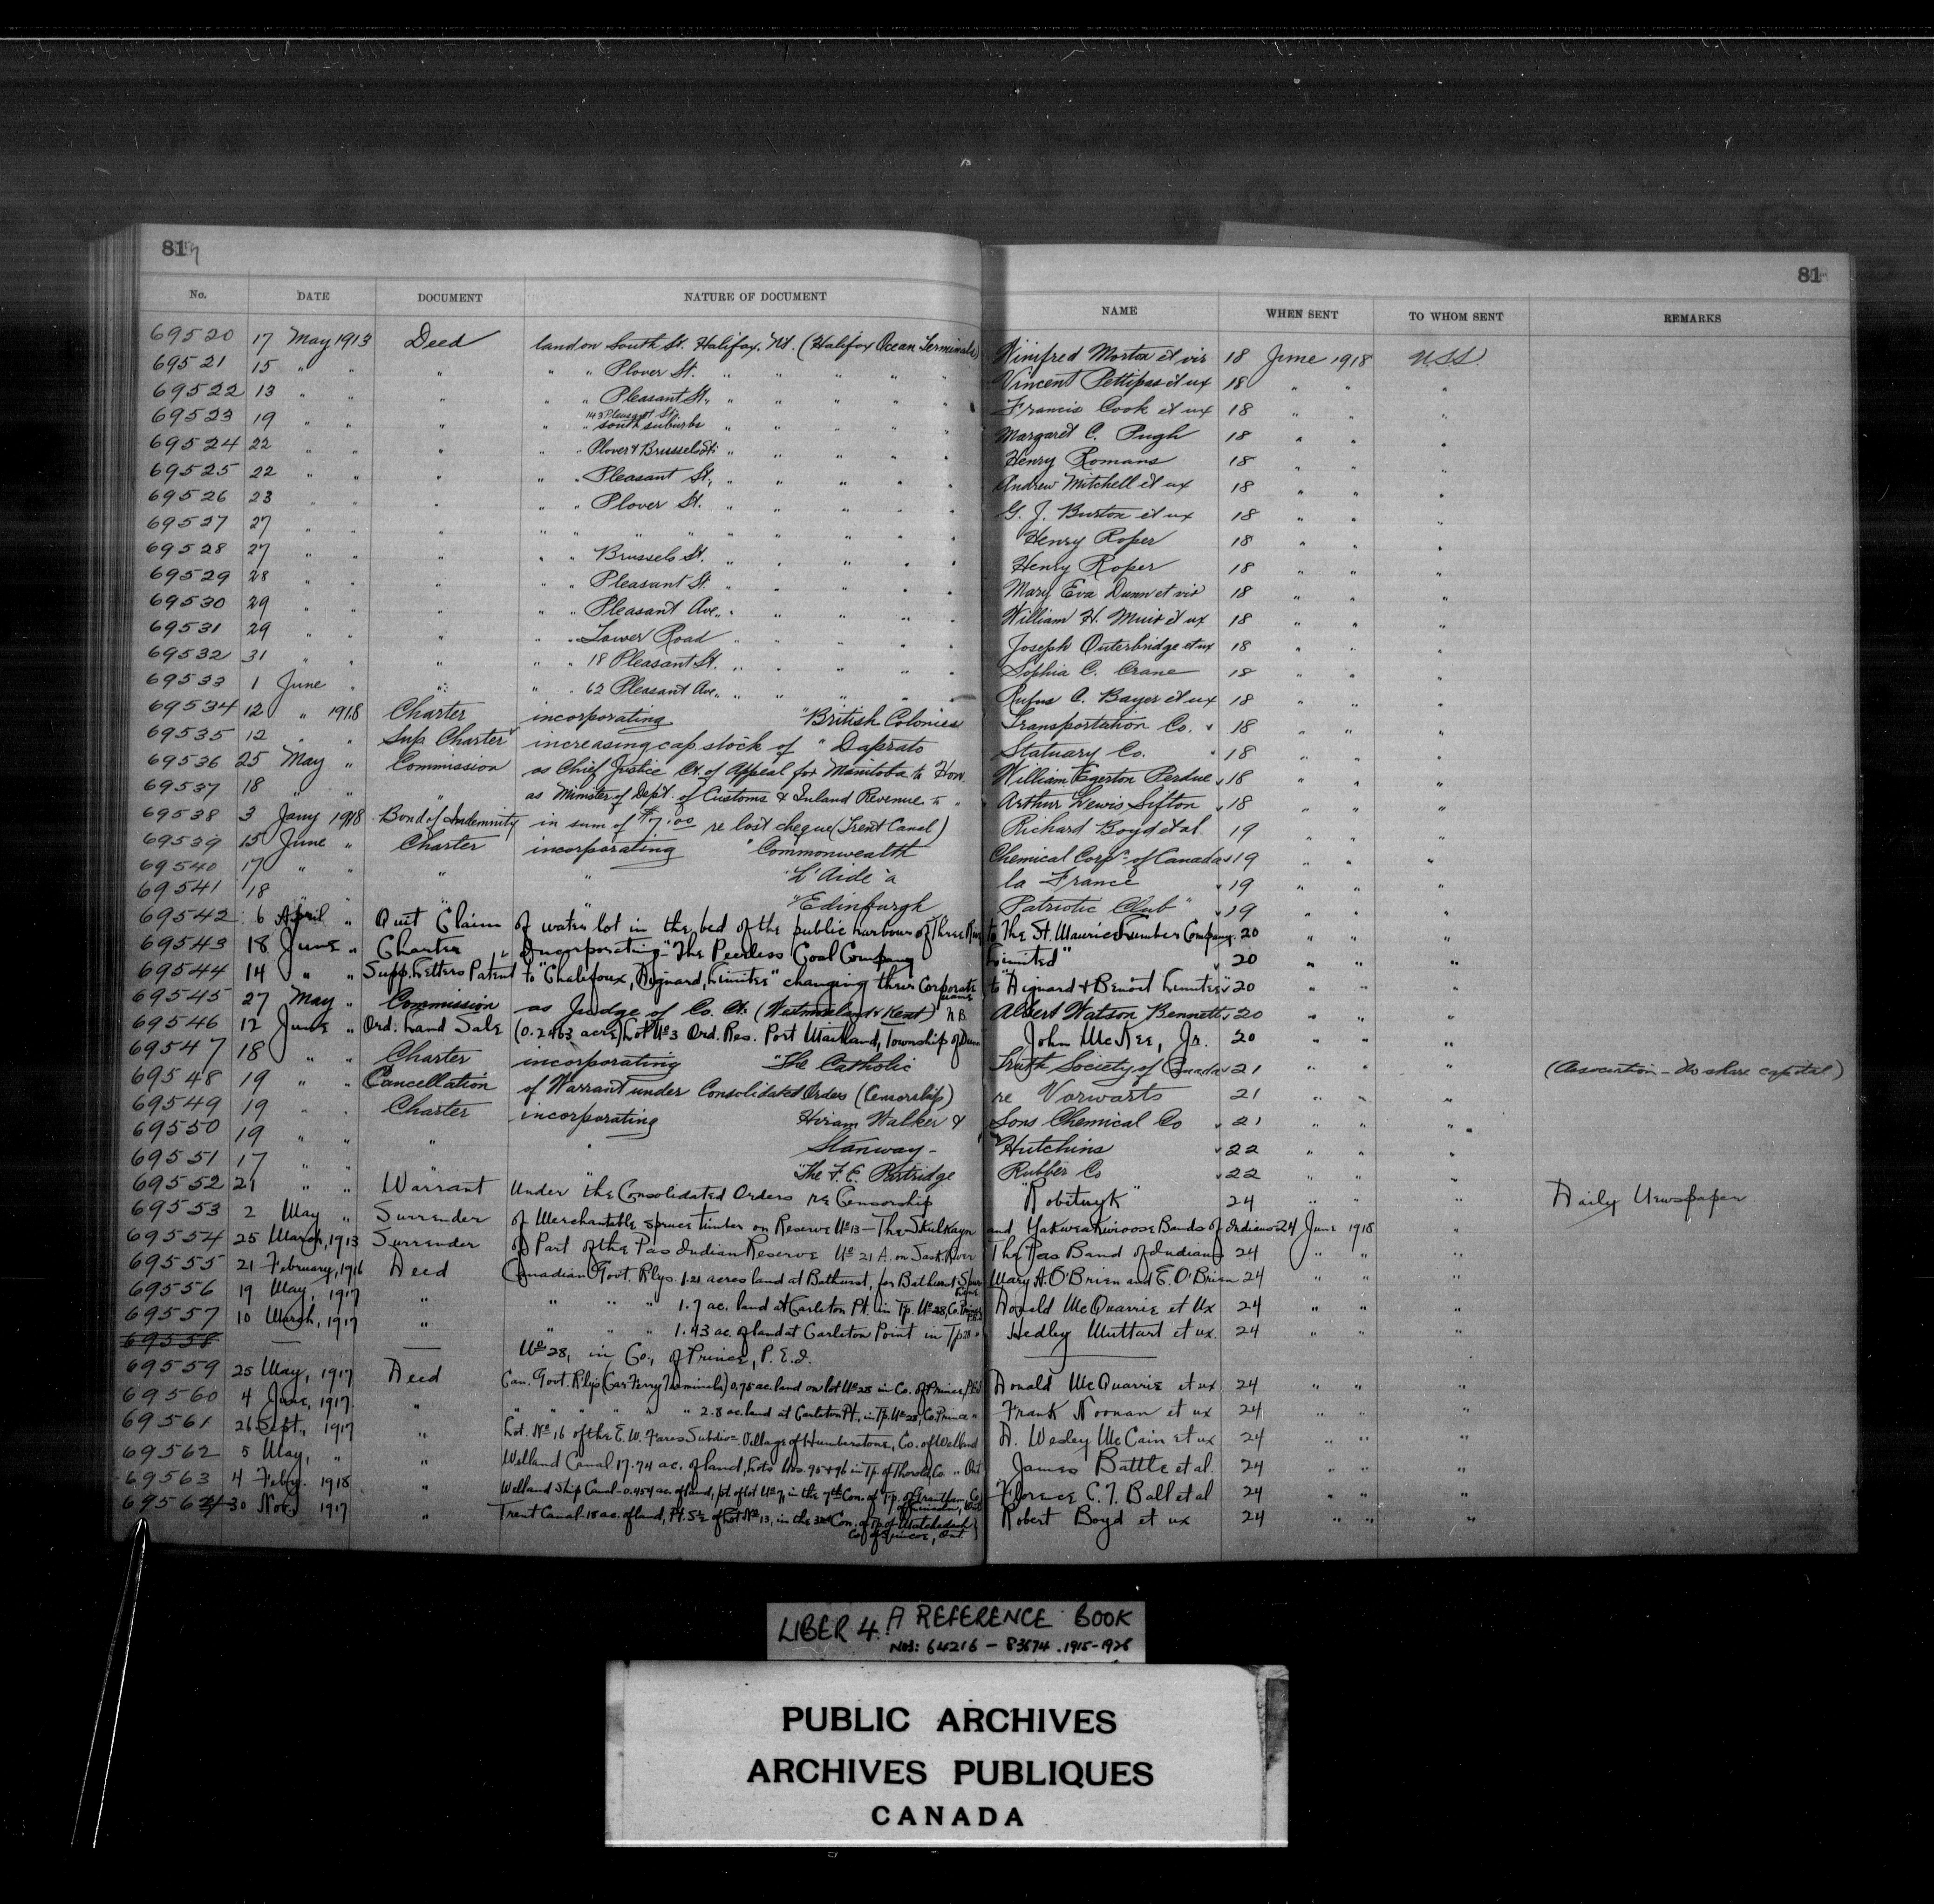 81
81
No. DATE DOCUMENT NATURE OF DOCUMENT NAME WHEN SENT TO WHOM SENT REMARKS
69520 17 May 1913 Deed land on South St. Halifax, N.S. (Halifax Ocean Terminals) Winifred Morton et vir 18 June 1918 U.S.S.
69521 15 " " " " " Plover St. " " " " " Vincent Pettipas et ux 18 " " "
69522 13 " " " " " Pleasant St. " " " " " Francis Cook et ux 18 " " "
143 Pleasant St.
69523 19 " " " " " South suburbs " " " " " Margaret C. Pugh 18 " " "
69524 22 " " " " " Plover & Brussels St. " " " " " Henry Romans 18 " " "
69525 22 " " " " " Pleasant St. " " " " " Andrew Mitchell et ux 18 " " "
69526 23 " " " " " Plover St. " " " " " G. J. Burton et ux 18 " " "
69527 27 " " " " " " " " " " " " Henry Roper 18 " " "
69528 27 " " " " " Brussels St. " " " " " Henry Roper 18 " " "
69529 28 " " " " " Pleasant St. " " " " " Mary Eva Dunn et vir 18 " " "
69530 29 " " " " " Pleasant Ave. " " " " " William H. Muir et ux 18 " " "
69531 29 " " " " " Tower Road " " " " " Joseph Outerbridge et ux 18 " " "
69532 31 " " " " " 18 Pleasant St. " " " " " Sophia C. Crane 18 " " "
69533 1 June " " " " 62 Pleasant Ave. " " " " " Rufus C. Bayer et ux 18 " " "
69534 12 " 1918 Charter incorporating "British Colonies Transportation Co. " 18 " " "
69535 12 " " Sup. Charter increasing cap stock of "Daprato Statuary Co. " 18 " " "
69536 25 May " Commission as Chief Justice Ct. of Appeal for Manitoba to Hon. William Egerton Perdue 18 " " "
69537 18 " " " as Minister of Dept. of Customs & Inland Revenue to " Arthur Lewis Sifton 18 " " "
69538 3 Jany 1918 Bond of Indemnity in sum of $7.00 re lost cheque (Trent Canal) Richard Boyd et al 19 " " "
69539 15 June " Charter incorporating "Commonwealth Chemical Corpn. of Canada 19 " " "
69540 17 " " " " "L'Aide à la France 19 " " "
69541 18 " " " " "Edinburgh Patriotic Club" 19 " " "
69542 6 April " Quit Claim of water lot in the bed of the public harbour of Three Riv to The St. Maurice Lumber Company. 20 " " "
69543 18 June " Charter Incorporating "The Peerless Coal Company Limited" 20 " " "
69544 14 " " Supp. Letters Patent to "Chalifoux, Aiguard, Limitee" changing their Corporate name to "Aiguard & Benoit Limitee" 20 " " "
69545 27 May " Commission as Judge of Co. Ct. (Westmorland & Kent) N.B. Albert Watson Bennett 20 " " "
69546 12 June " Ord. Land Sale (0.2463 acre) Lot No 3 Ord. Res. Port Maitland, Township of Dunn John McKee, Jr. 20 " " "
69547 18 " " Charter incorporating "The Catholic Truth Society of Canada 21 " " " (Association - No share capital)
69548 19 " " Cancellation of Warrant under Consolidated Orders (Censorship) re Vorwarts 21 " " "
69549 19 " " Charter incorporating Hiram Walker & Sons Chemical Co 21 " " "
69550 19 " " " " Stanway- Hutchins 22 " " "
69551 17 " " " " "The F. E. Partridge Rubber Co 22 " " "
69552 21 " " Warrant Under the Consolidated Orders re Censorship "Robitnyk" 24 " " " Daily Newspaper
69553 2 May " Surrender of Merchantable spruce timber on Reserve No 13 - The Skulkayn and Yakweakwioose Bands of Indians 24 June 1918 "
69554 25 March, 1913 Surrender of Part of the Pas Indian Reserve No 21 A. on Sask. River The Pas Band of Indians 24 " " "
69555 21 February, 1916 Deed Canadian Govt. Rlys. 1.21 acres land at Bathurst, for Bathurst Spur Line Mary A. O'Brien and E. O'Brien 24 " " "
69556 19 May, 1917 " " " " 1.7 ac. land at Carleton Pt. in Tp. No 28, Co. Prince P.E.I. Donald McQuarrie et ux 24 " " "
69557 10 March, 1917 " " " " 1.43 ac. of land at Carleton Point in Tp. Hedley Muttart et ux. 24 " " "
69558 — — No 28, in Co., of Prince, P.E.I. —
69559 25 May, 1917 Deed Can. Govt. Rlys (Car Ferry Terminals) 0.75 ac. land on lot No 28 in Co. of Prince, P.E.I. Donald McQuarrie et ux 24 " " "
69560 4 June, 1917. " " " " " " 2.8 ac. land at Carleton Pt., in Tp. No 28, Co. Prince " Frank Noonan et ux 24 " " "
69561 26 Sept., 1917 " Lot. No 16 of the E. W. Fares Subdivn. Village of Humberstone, Co. of Welland A. Wesley McCain et ux 24 " " "
69562 5 May, " " Welland Canal 17.74 ac. of land, Lots Nos. 95 & 96 in Tp. of Thorold, Co. " Ont James Battle et al. 24 " " "
69563 4 Feby. 1918 " Welland Ship Canal - 0.454 ac. of land, pt. of lot No 7, in the 7th Con. of Tp. of Grantham, Co of Lincoln, Ont Florence C. T. Ball et al 24 " " "
69564 30 Nov. 1917 " Trent Canal - 18 ac. of land, Pt. S½ of Lot No 13, in the 3rd Con. of Tp. of Matchedash Co. of Simcoe, Ont. Robert Boyd et ux 24 " " "
LIBER 4. A REFERENCE BOOK
NOS: 64216 - 83674. 1915-1928
PUBLIC ARCHIVES
ARCHIVES PUBLIQUES
CANADA